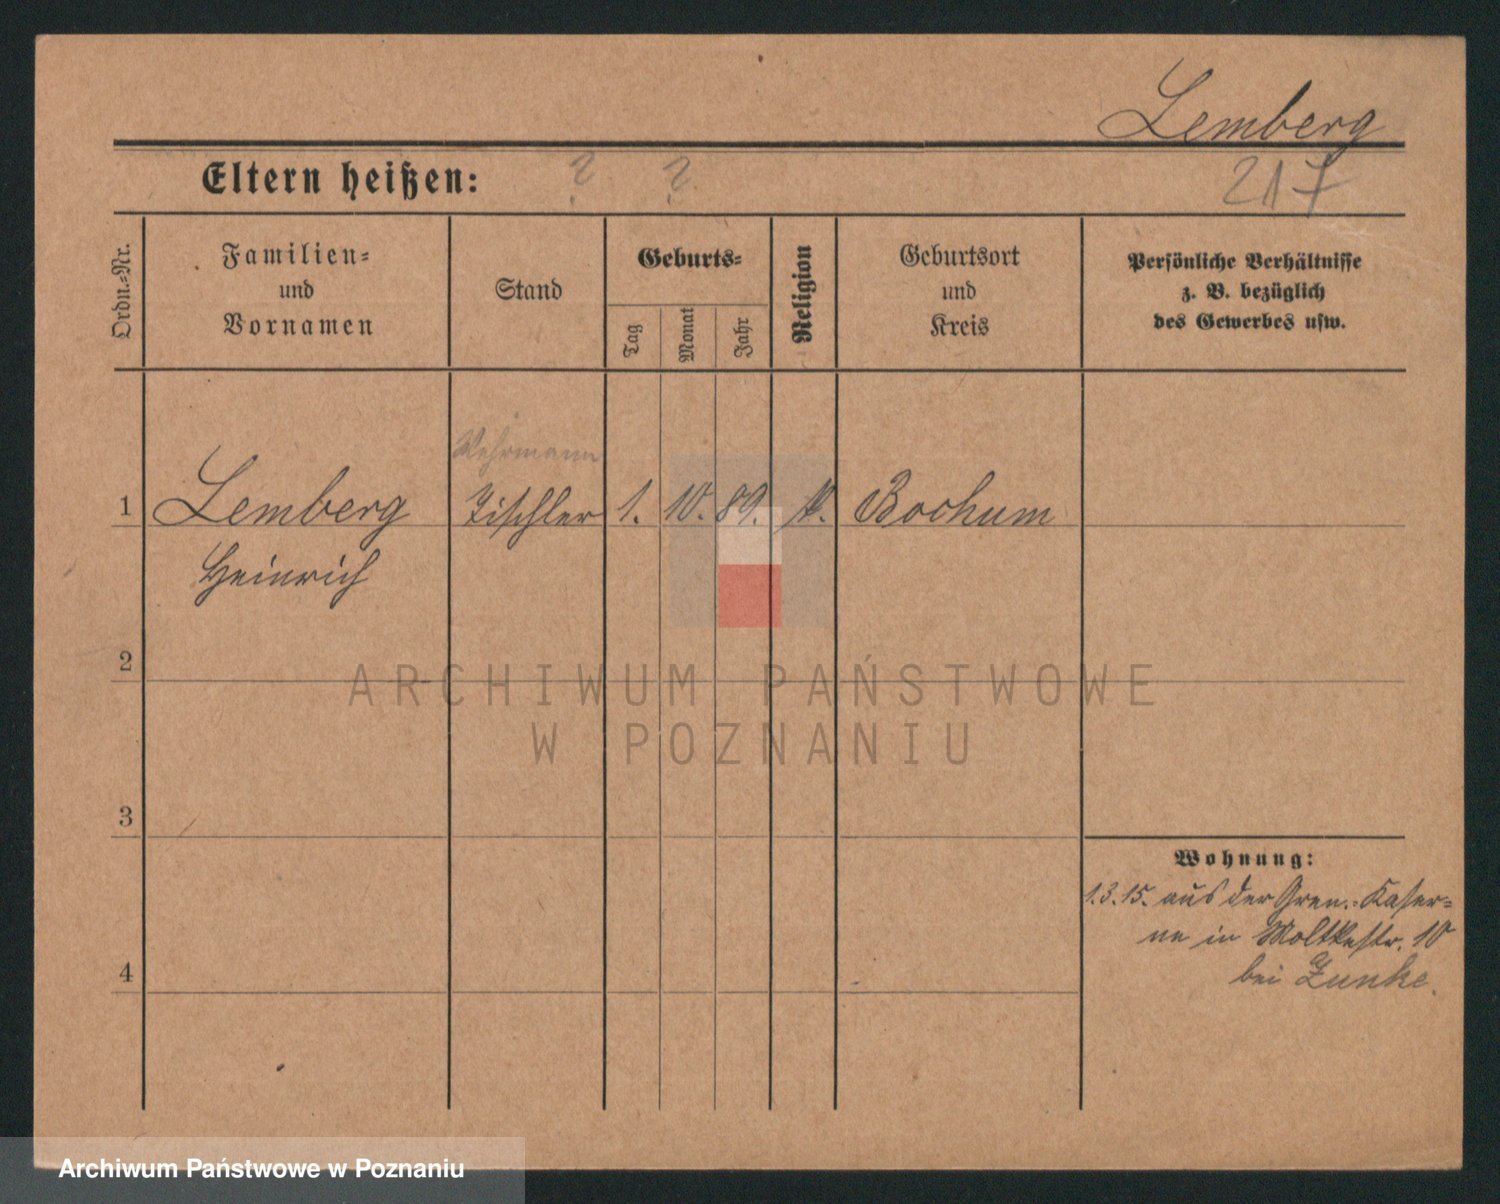 Lemberg
Eltern heißen: ? ?
217
Ordn.-Nr.
Familien-
und
Vornamen
Stand
Geburts-
Tag
Monat
Jahr
Religion
Geburtsort
und
Kreis
Persönliche Verhältnisse
z. B. bezüglich
des Gewerbes usw.
Wehrmann
1 Lemberg Tischler 1. 10. 89. Bochum
Heinrich
2
ARCHIWUM PAŃSTWOWE
W POZNANIU
3
Wohnung:
1.3.15. aus der Gren.-Kaser-
ne in Moltkestr. 10
bei Zunke.
4
Archiwum Państwowe w Poznaniu